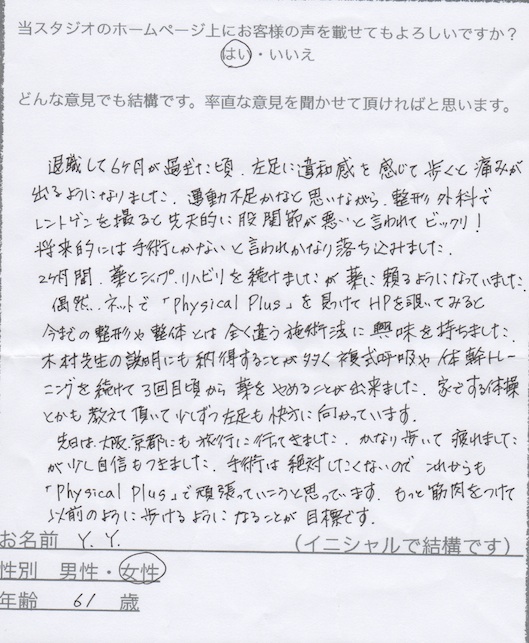 当スタジオのホームページ上にお客様の声を載せてもよろしいですか？
はい・いいえ
どんな意見でも結構です。率直な意見を聞かせて頂ければと思います。
退職して6ヶ月が過ぎた頃、左足に違和感を感じて歩くと痛みが
出るようになりました。運動不足かなと思いながら、整形外科で
レントゲンを撮ると先天的に股関節が悪いと言われてビックリ！
将来的には手術しかないと言われかなり落ち込みました。
2ヶ月間、薬とシップ、リハビリを続けましたが薬に頼るようになっていました。
偶然、ネットで「Physical Plus」を見つけてHPを覗いてみると
今までの整形や整体とは全く違う施術法に興味を持ちました。
木村先生の説明にも納得することが多く複式呼吸や体幹トレー
ニングを続けて3回目頃から薬をやめることが出来ました。家でする体操
とかも教えて頂いて少しずつ左足も快方に向かっています。
先日は、大阪、京都にも旅行に行ってきました。かなり歩いて疲れました
が少し自信もつきました。手術は絶対したくないのでこれからも
「Physical Plus」で頑張っていこうと思っています。もっと筋肉をつけて
以前のように歩けるようになることが目標です。
お名前 Y. Y. （イニシャルで結構です）
性別 男性・女性
年齢 61 歳